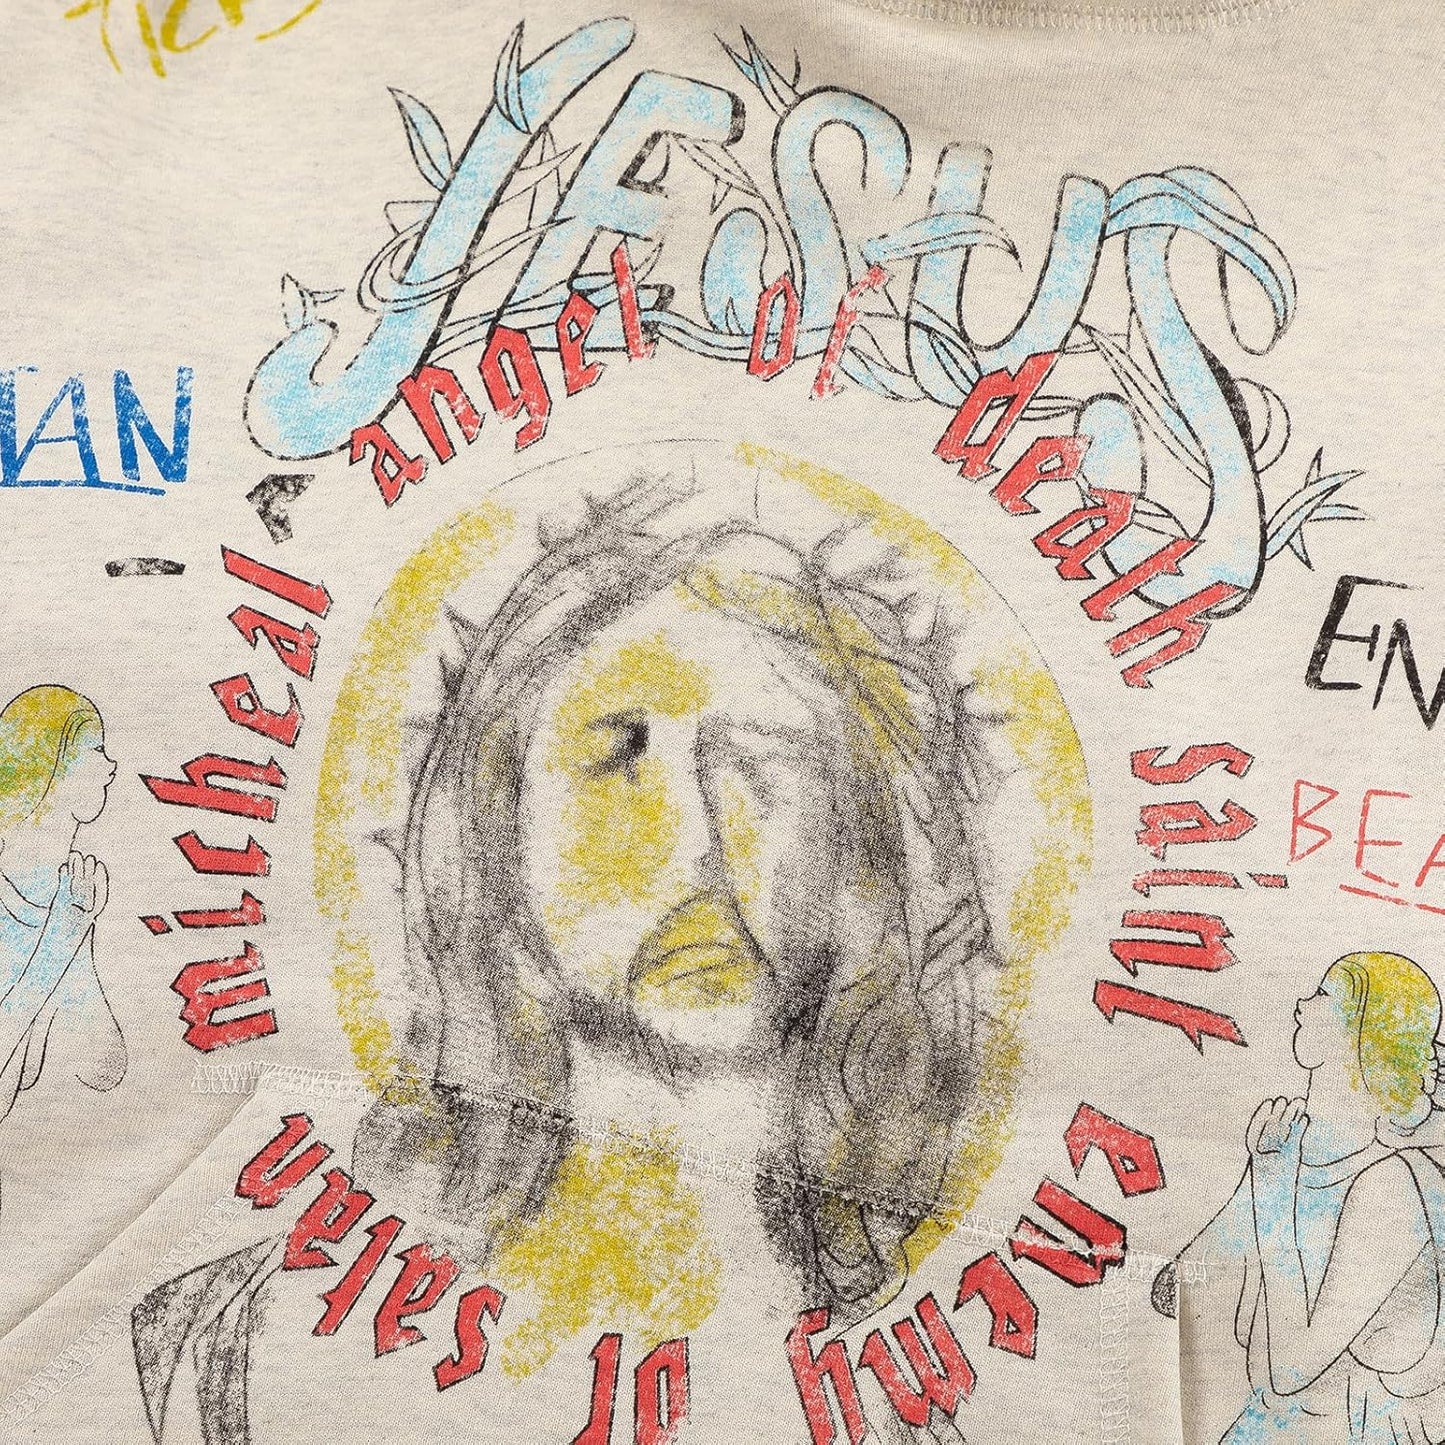 JESUS
micheal angel of death saint enemy of satan
TAN
EN
BEA